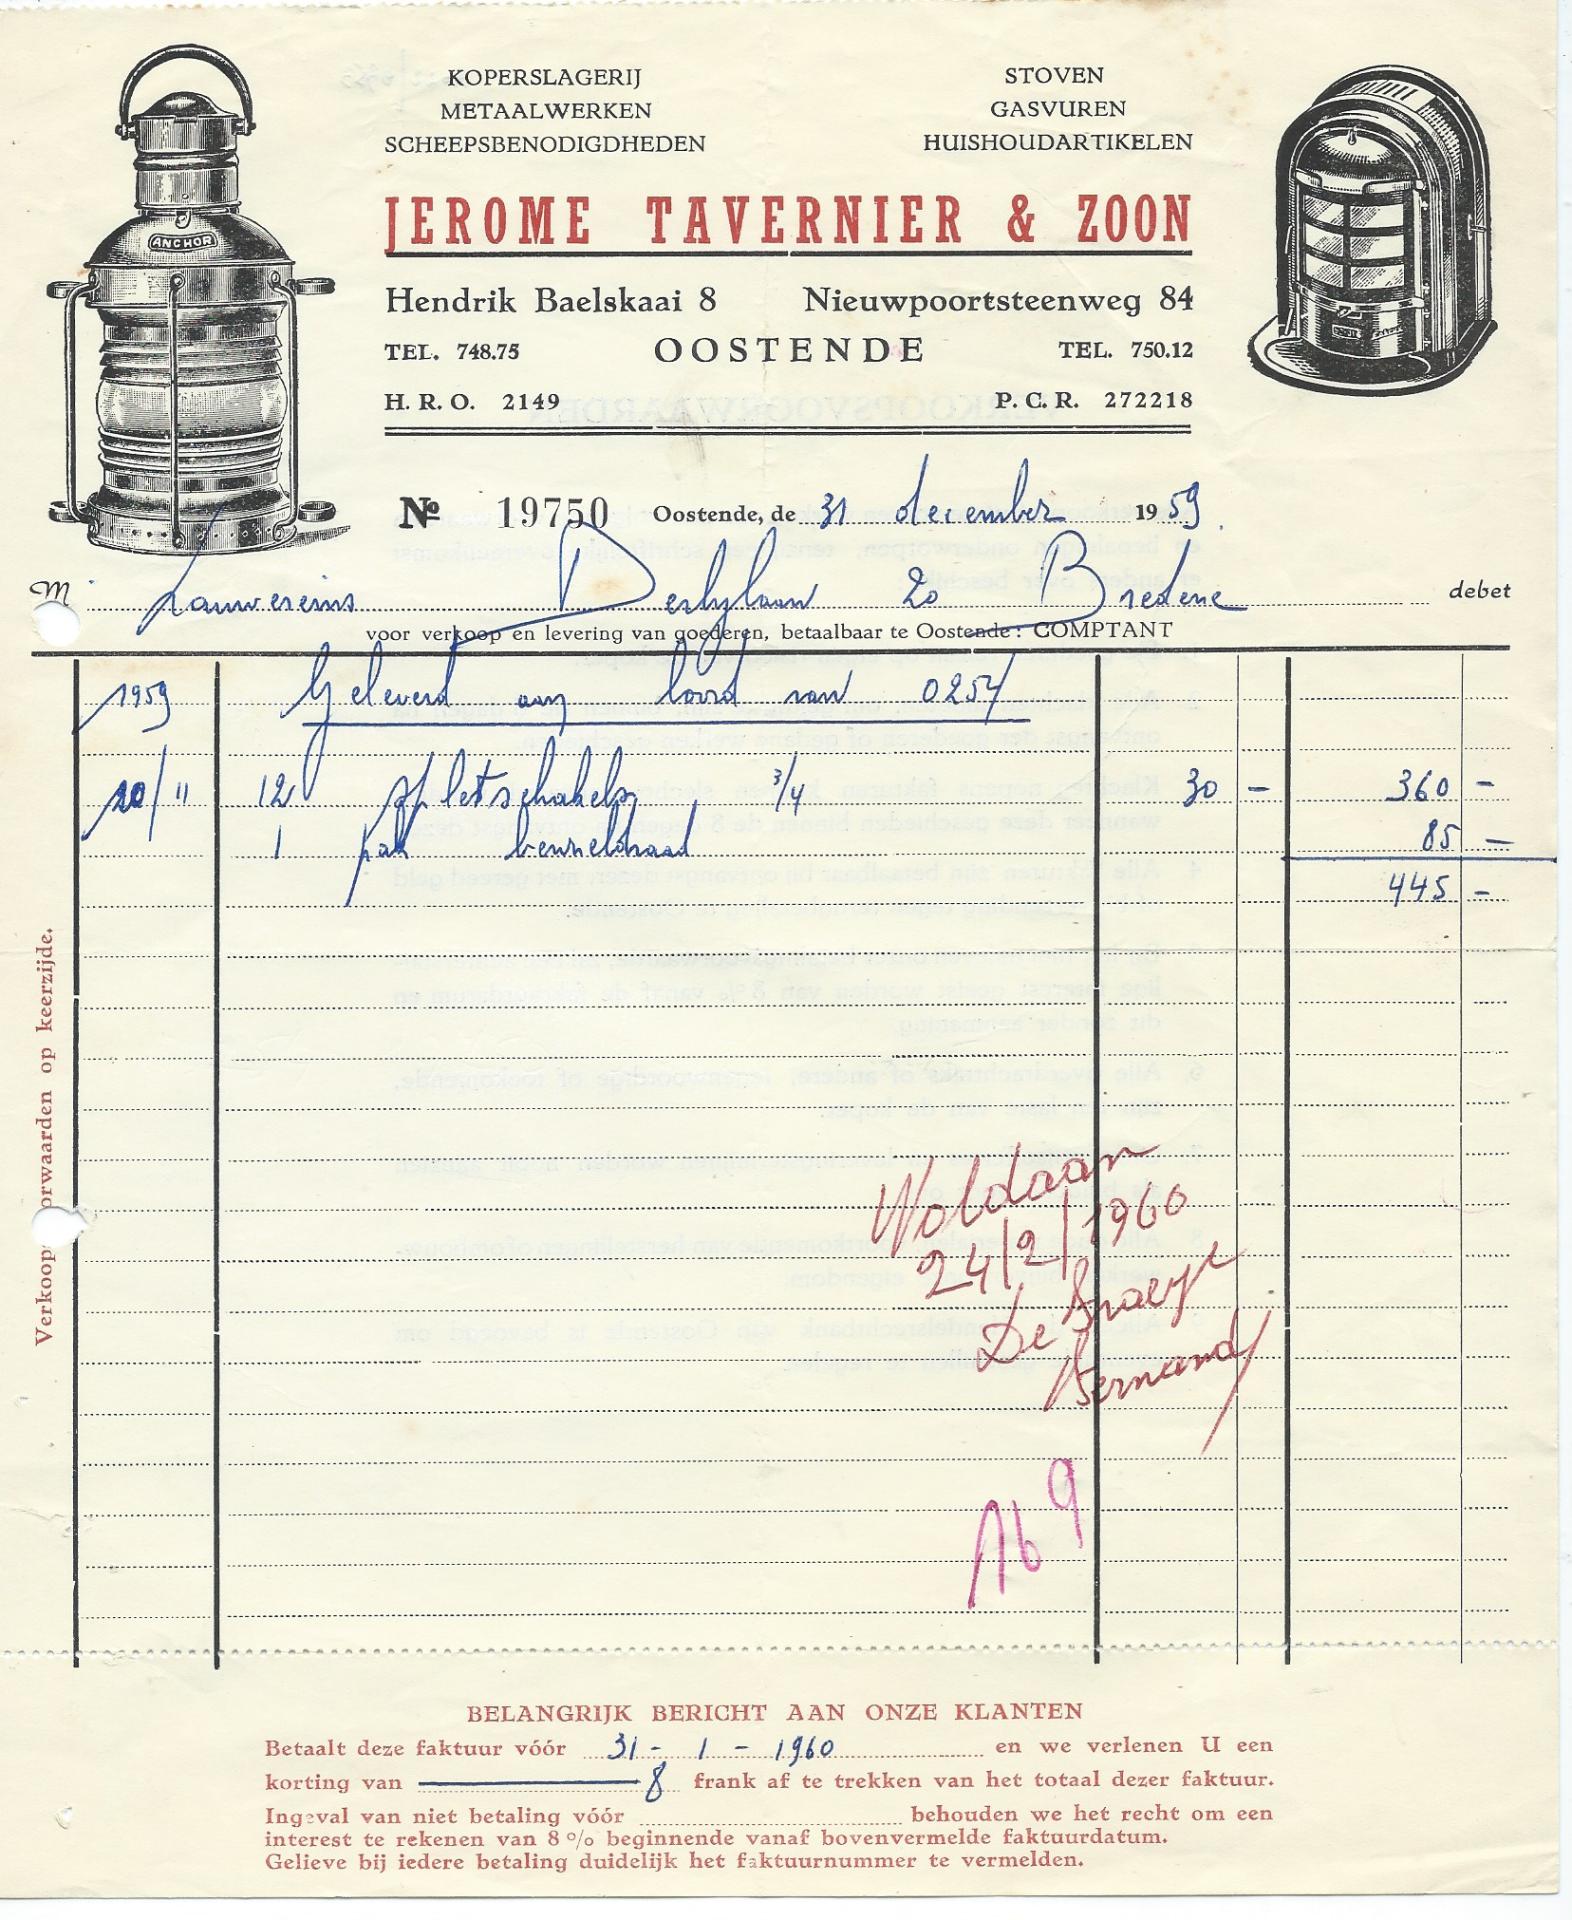 KOPERSLAGERIJ
METAALWERKEN
SCHEEPSBENODIGDHEDEN
STOVEN
GASVUREN
HUISHOUDARTIKELEN
ANCHOR
JEROME TAVERNIER & ZOON
Hendrik Baelskaai 8 Nieuwpoortsteenweg 84
TEL. 748.75 OOSTENDE TEL. 750.12
H. R. O. 2149 P. C. R. 272218
No 19750 Oostende, de 31 december 1959.
M Lauwereins Derbylaan 20 Bredene debet
voor verkoop en levering van goederen, betaalbaar te Oostende: COMPTANT
1959 Geleverd aan boord van 0254
20/11 12 spletschakels 3/4 30 - 360 -
1 pak benseldraad 85 -
445 -
Verkoop orwaarden op keerzijde.
Voldaan
24/2/1960
De
Fernand
169
BELANGRIJK BERICHT AAN ONZE KLANTEN
Betaalt deze faktuur vóór 31 - 1 - 1960 en we verlenen U een
korting van 8 frank af te trekken van het totaal dezer faktuur.
Ingeval van niet betaling vóór behouden we het recht om een
interest te rekenen van 8 % beginnende vanaf bovenvermelde faktuurdatum.
Gelieve bij iedere betaling duidelijk het faktuurnummer te vermelden.